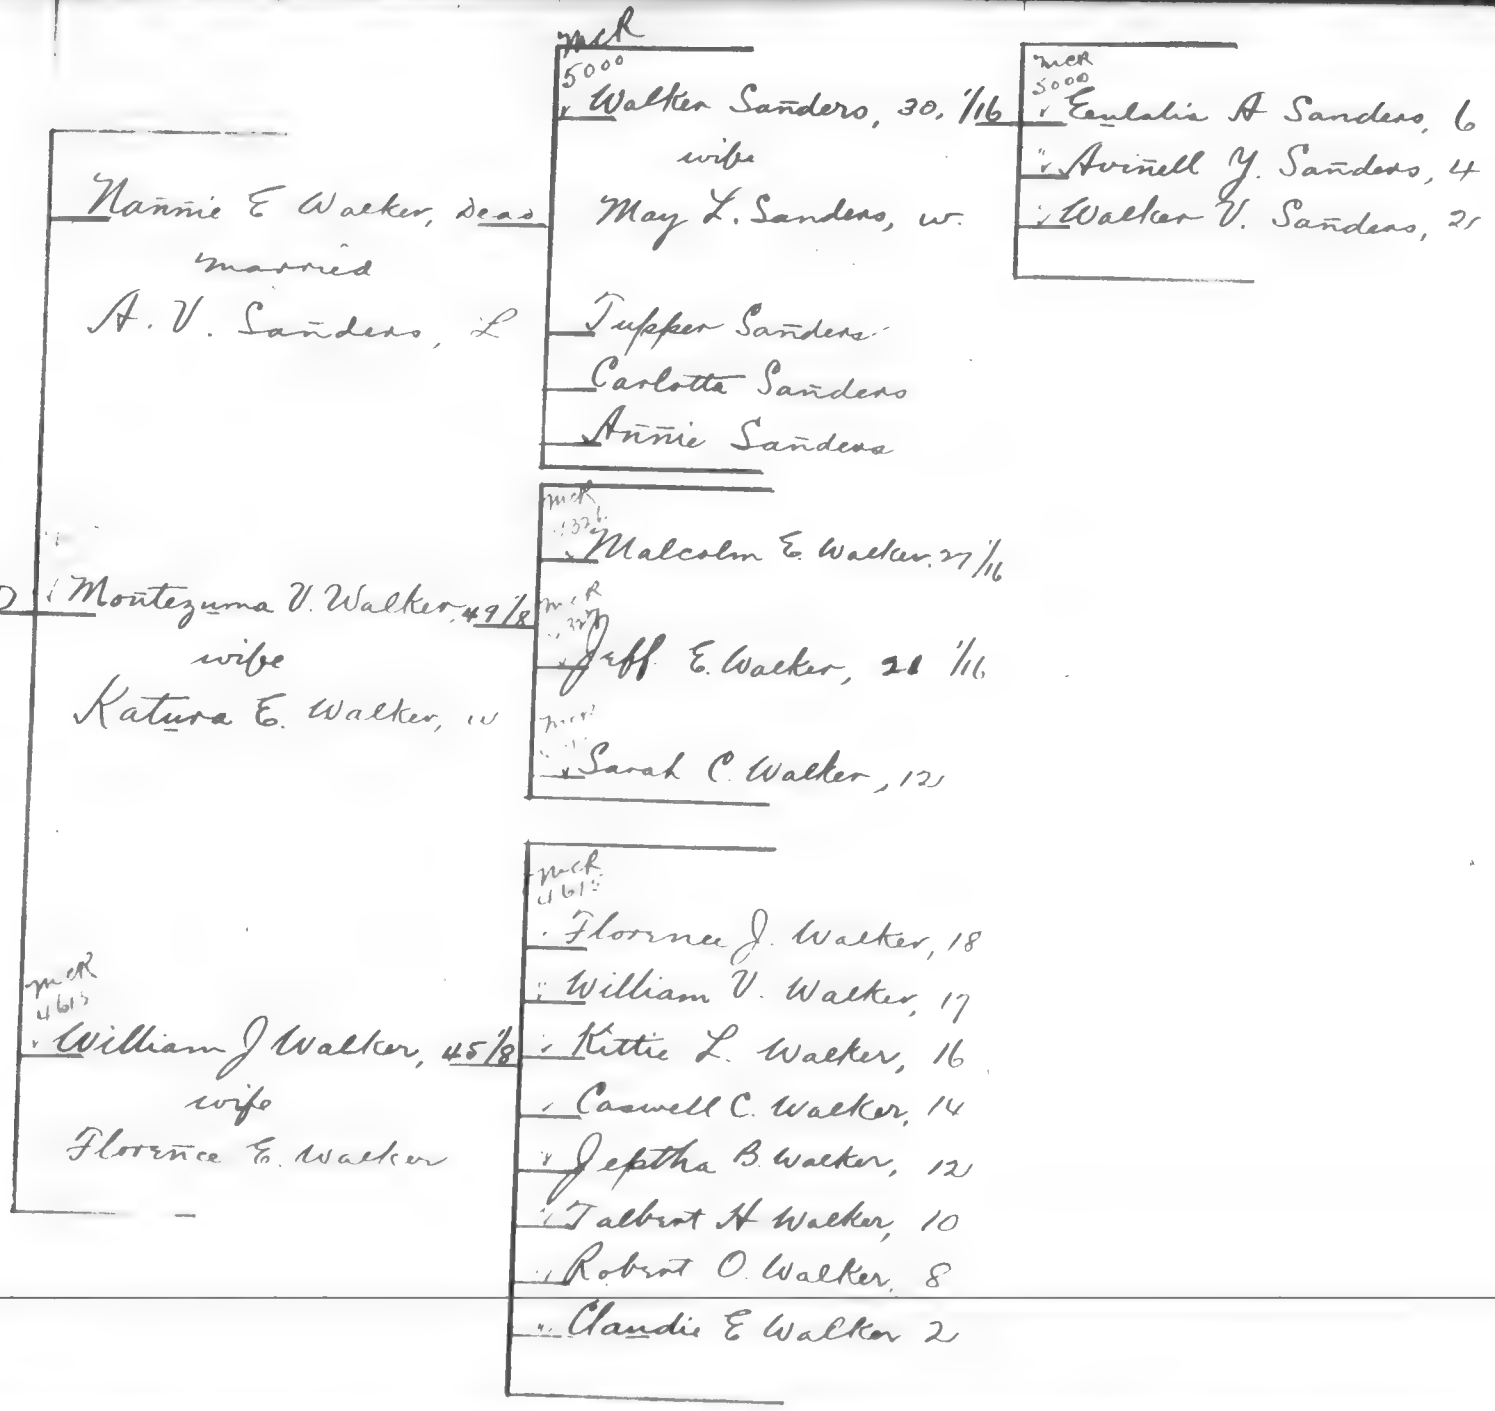 Nannie E Walker, Dead
married
A. V. Sanders, L
Montezuma V. Walker, 49 1/8
wife
Katura E. Walker, w
McR
4615
William J Walker, 45 1/8
wife
Florence E. Walker
McR
5000
Walker Sanders, 30, 1/16
wife
May L. Sanders, w.
Tupper Sanders
Carlotta Sanders
Annie Sanders
McR
Malcolm E. Walker, 27 1/16
McR
Jeff E. Walker, 21 1/16
McR
Sarah C. Walker, 12
McR
4615
Florence J. Walker, 18
William V. Walker, 17
Kittie L. Walker, 16
Caswell C. Walker, 14
Jeptha B. Walker, 12
Talbert H Walker, 10
Robert O. Walker, 8
Claudie E Walker 2
McR
5000
Eeulalia A Sanders, 6
Avinell Y. Sanders, 4
Walker V. Sanders, 2